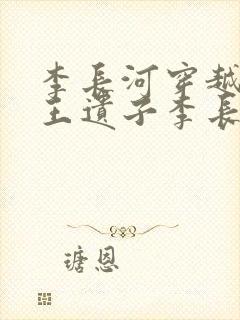 李長河穿越
王遺子李長
瑭恩